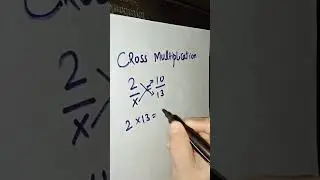 Cross Multiplication
2/x = 10/13
2 x 13 =